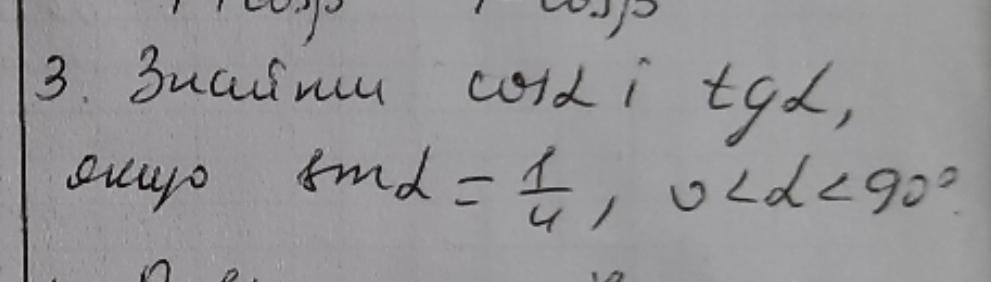 3. Знайти cosα і tgα,
якщо sinα = 1/4, 0 < α < 90°.